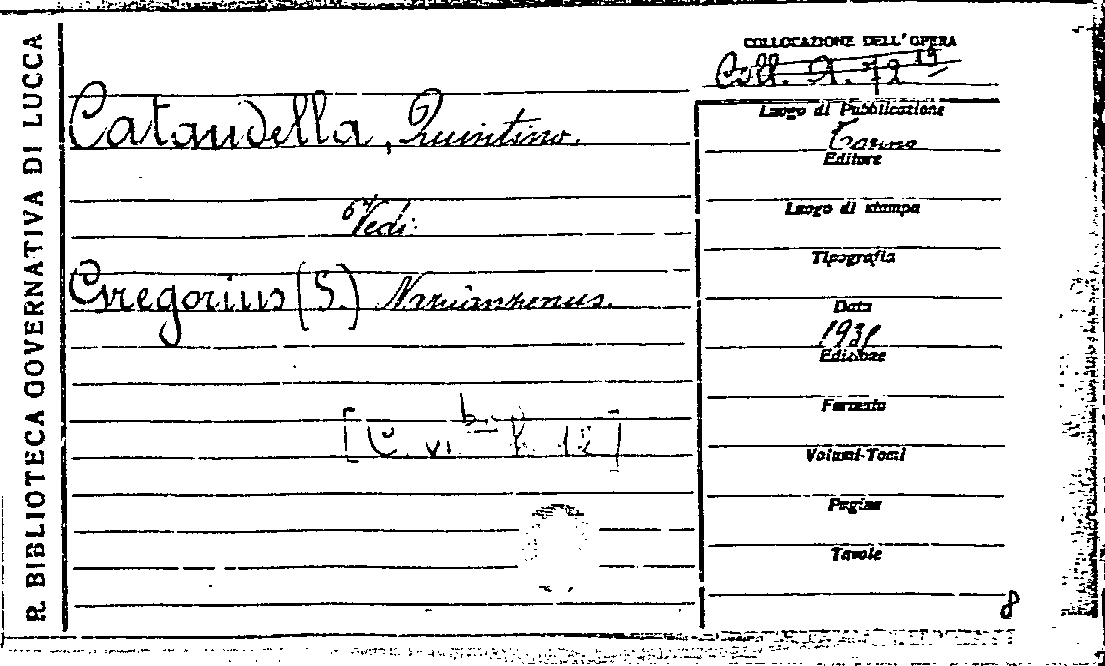 R. BIBLIOTECA GOVERNATIVA DI LUCCA
COLLOCAZIONE DELL'OPERA
Coll. A. 72 19
Cataudella, Quintino.
Vedi:
Gregorius (S.) Nazianzenus.
[C. VI b. 12]
Luogo di Pubblicazione
Torino
Editore
Luogo di stampa
Tipografia
Data
1931
Edizione
Formato
Volumi-Tomi
Pagine
Tavole
8